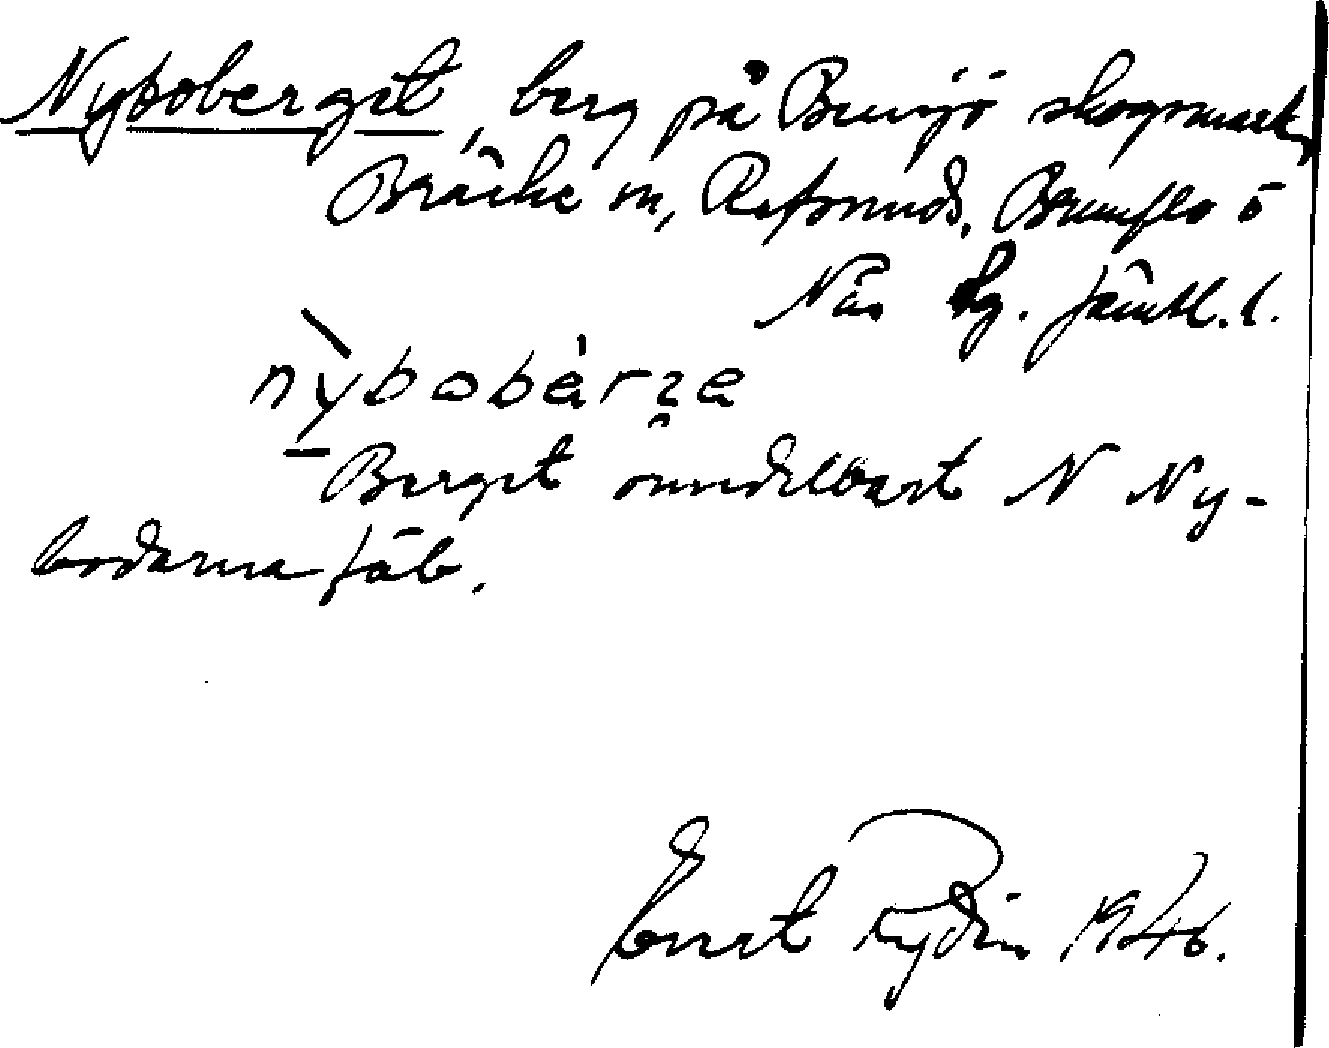 Nyboberget, berg på Bensjö skogsmark,
Bräcke sn, Refsunds, Brunflo o
Näs tg. Jämtl. l.
nỳbobàrʒe
Berget omedelbart N Ny-
bodarna fäb.
Ernst Rydin 1946.